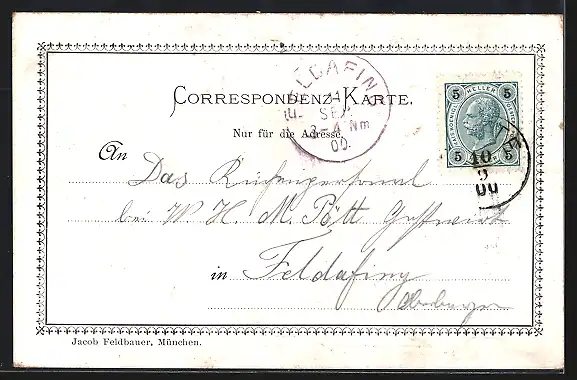 FELDAFING
11
SEP
3-4 Nm
00
CORRESPONDENZ-KARTE.
5 HELLER 5
5 5
10
9
00
Nur für die Adresse.
An
Das
bei W H. M. Pött Gastwirt
in Feldafing
Oberbayern
Jacob Feldbauer, München.